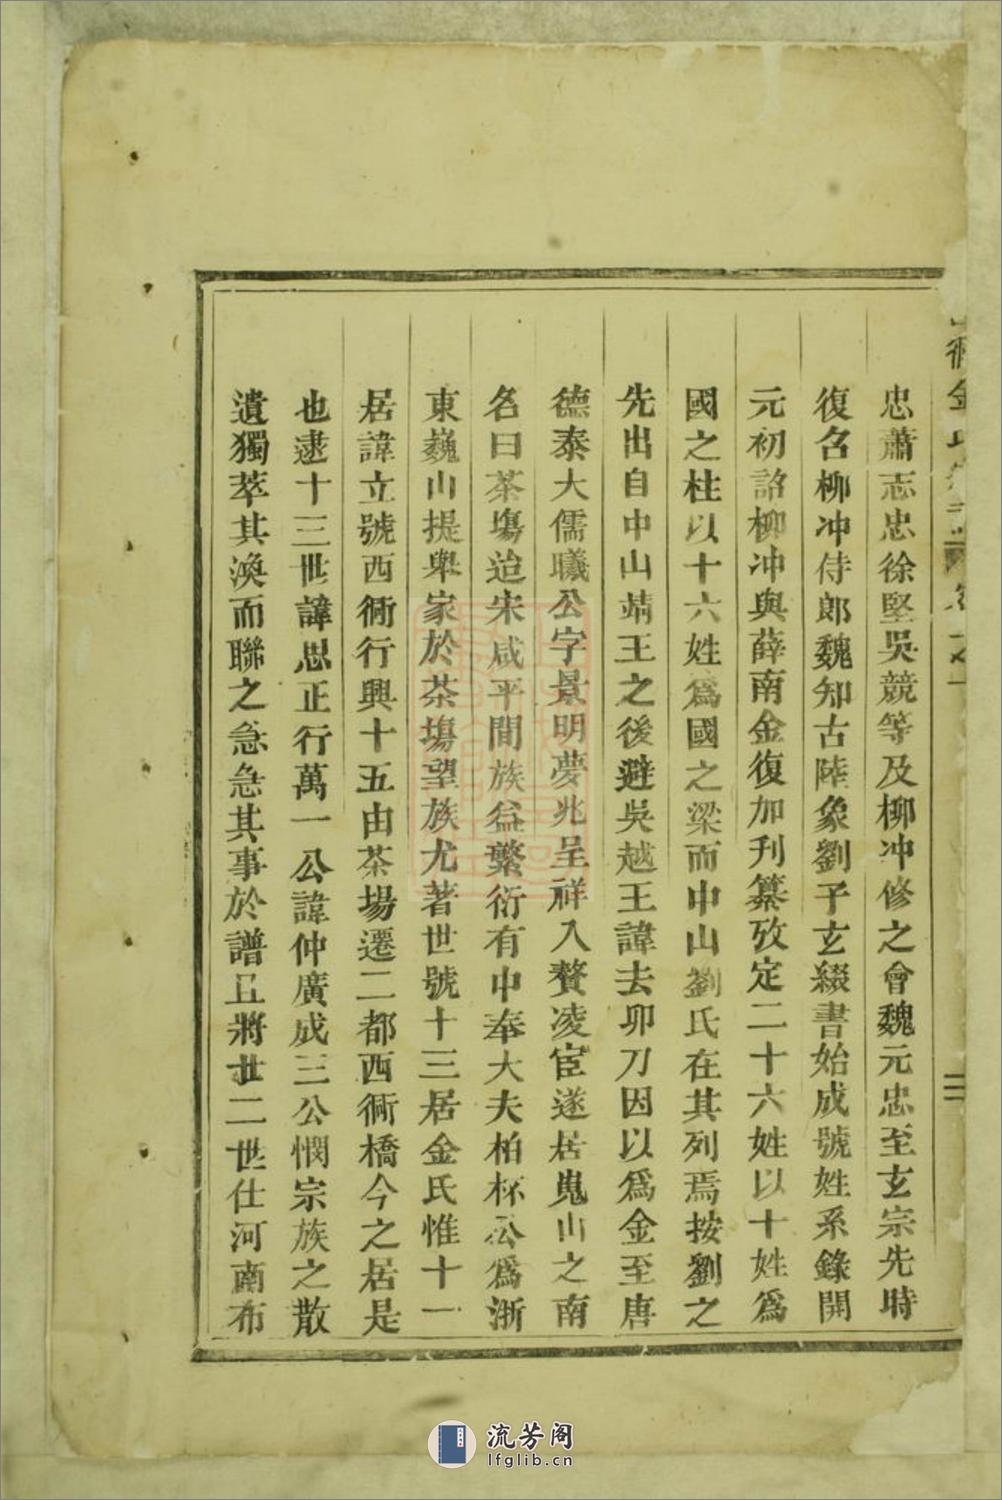 忠蕭志忠徐堅吳競等及柳冲修之會魏元忠至玄宗先時
復名柳冲侍郎魏知古陸象劉子玄綴書始成號姓系錄開
元初詔柳冲與薛南金復加刋纂攷定二十六姓以十姓爲
國之柱以十六姓爲國之梁而中山劉氏在其列焉按劉之
先出自中山靖王之後避吳越王諱去卯刀因以爲金至唐
德泰大儒曦公字景明夢兆呈祥入贅凌宦遂居嵬山之南
名曰茶塲迨宋咸平間族益繁衍有中奉大夫柏杯公爲浙
東巍山提舉家於茶塲望族尤著世號十三居金氏惟十一
居諱立號西衕行興十五由茶場遷二都西衕橋今之居是
也逮十三世諱思正行萬一公諱仲廣成三公憫宗族之散
遺獨萃其渙而聯之急急其事於譜且將廿二世仕河南布
流芳阁
lfglib.cn